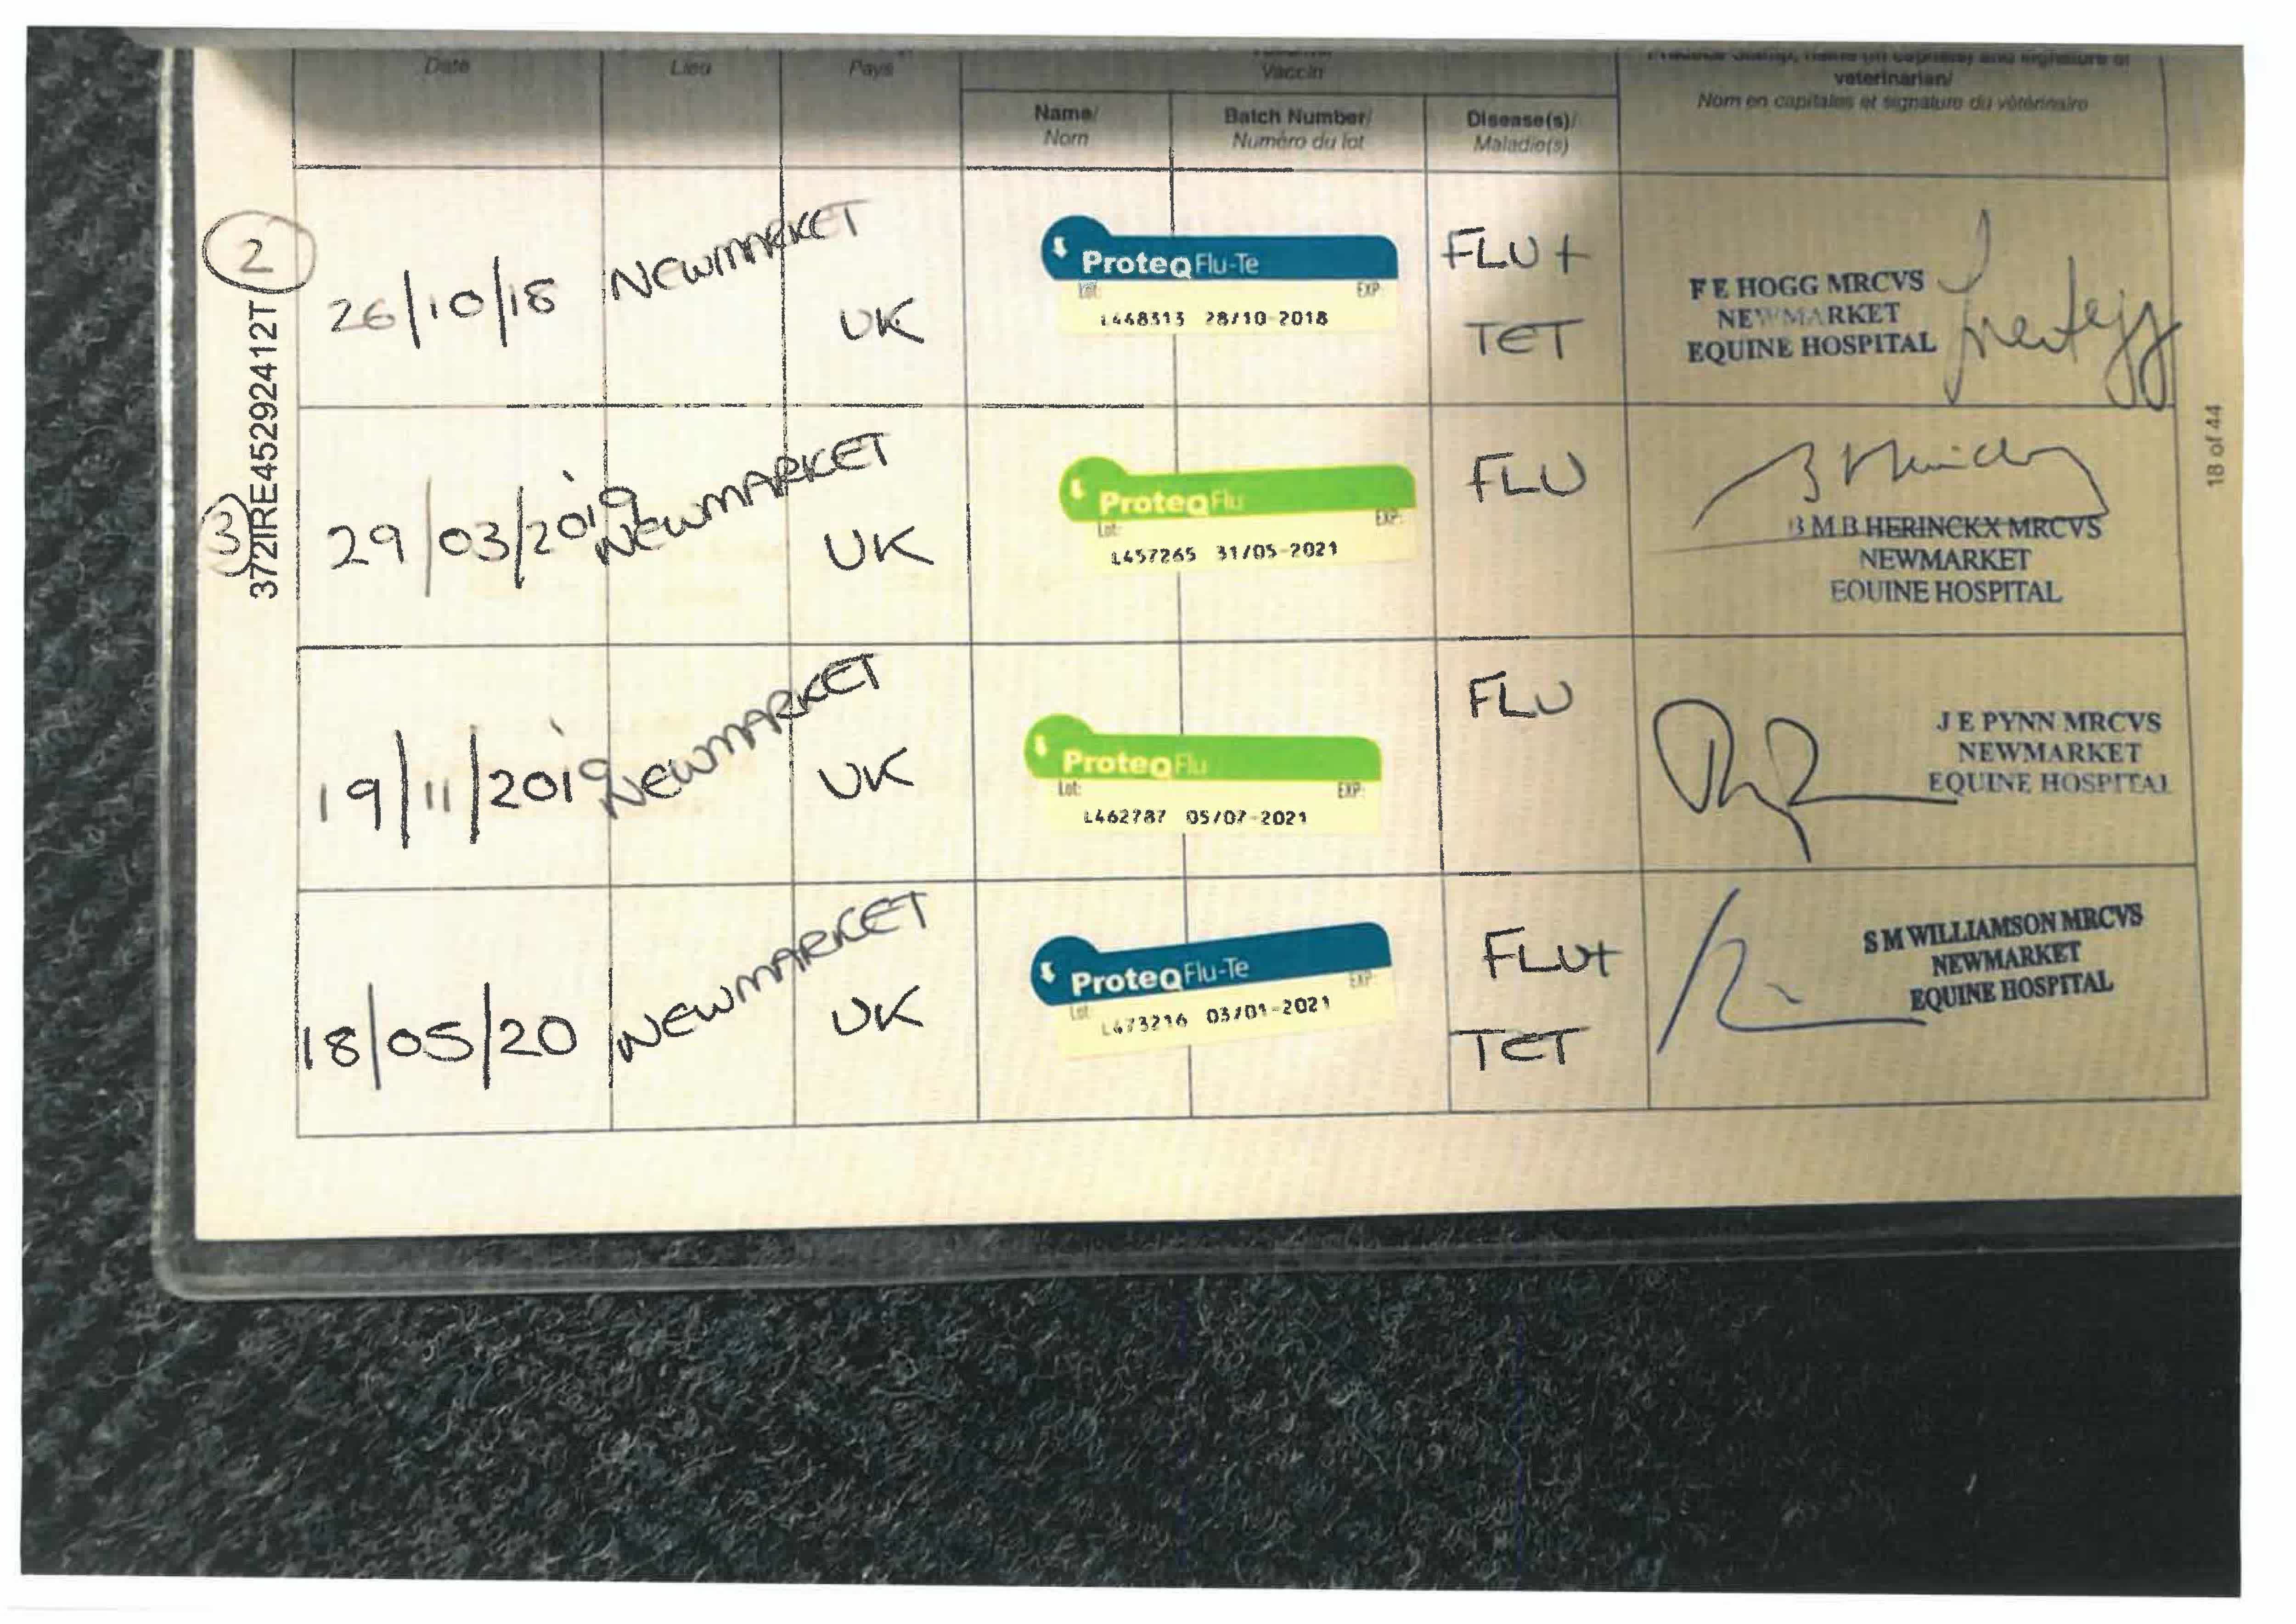 Date Lieu Pays Vaccin
veterinarian/
Nom en capitales et signature du vétérinaire
Name/ Batch Number/ Disease(s)/
Nom Numéro du lot Maladie(s)
2
26/10/18 NEWMARKET UK
ProteqFlu-Te
Lot: EXP
L448313 28/10-2018
FLU +
TET
F E HOGG MRCVS
NEWMARKET
EQUINE HOSPITAL
3
372IRE45292412T
29/03/2019 NEWMARKET UK
ProteqFlu
Lot: EXP:
L457265 31/05-2021
FLU
B M B HERINCKX MRCVS
NEWMARKET
EQUINE HOSPITAL
18 of 44
19/11/2019 NEWMARKET UK
ProteqFlu
Lot: EXP:
L462787 05/07-2021
FLU
J E PYNN MRCVS
NEWMARKET
EQUINE HOSPITAL
18/05/20 NEWMARKET UK
ProteqFlu-Te
Lot: EXP:
L473216 03/01-2021
FLU+
TET
S M WILLIAMSON MRCVS
NEWMARKET
EQUINE HOSPITAL